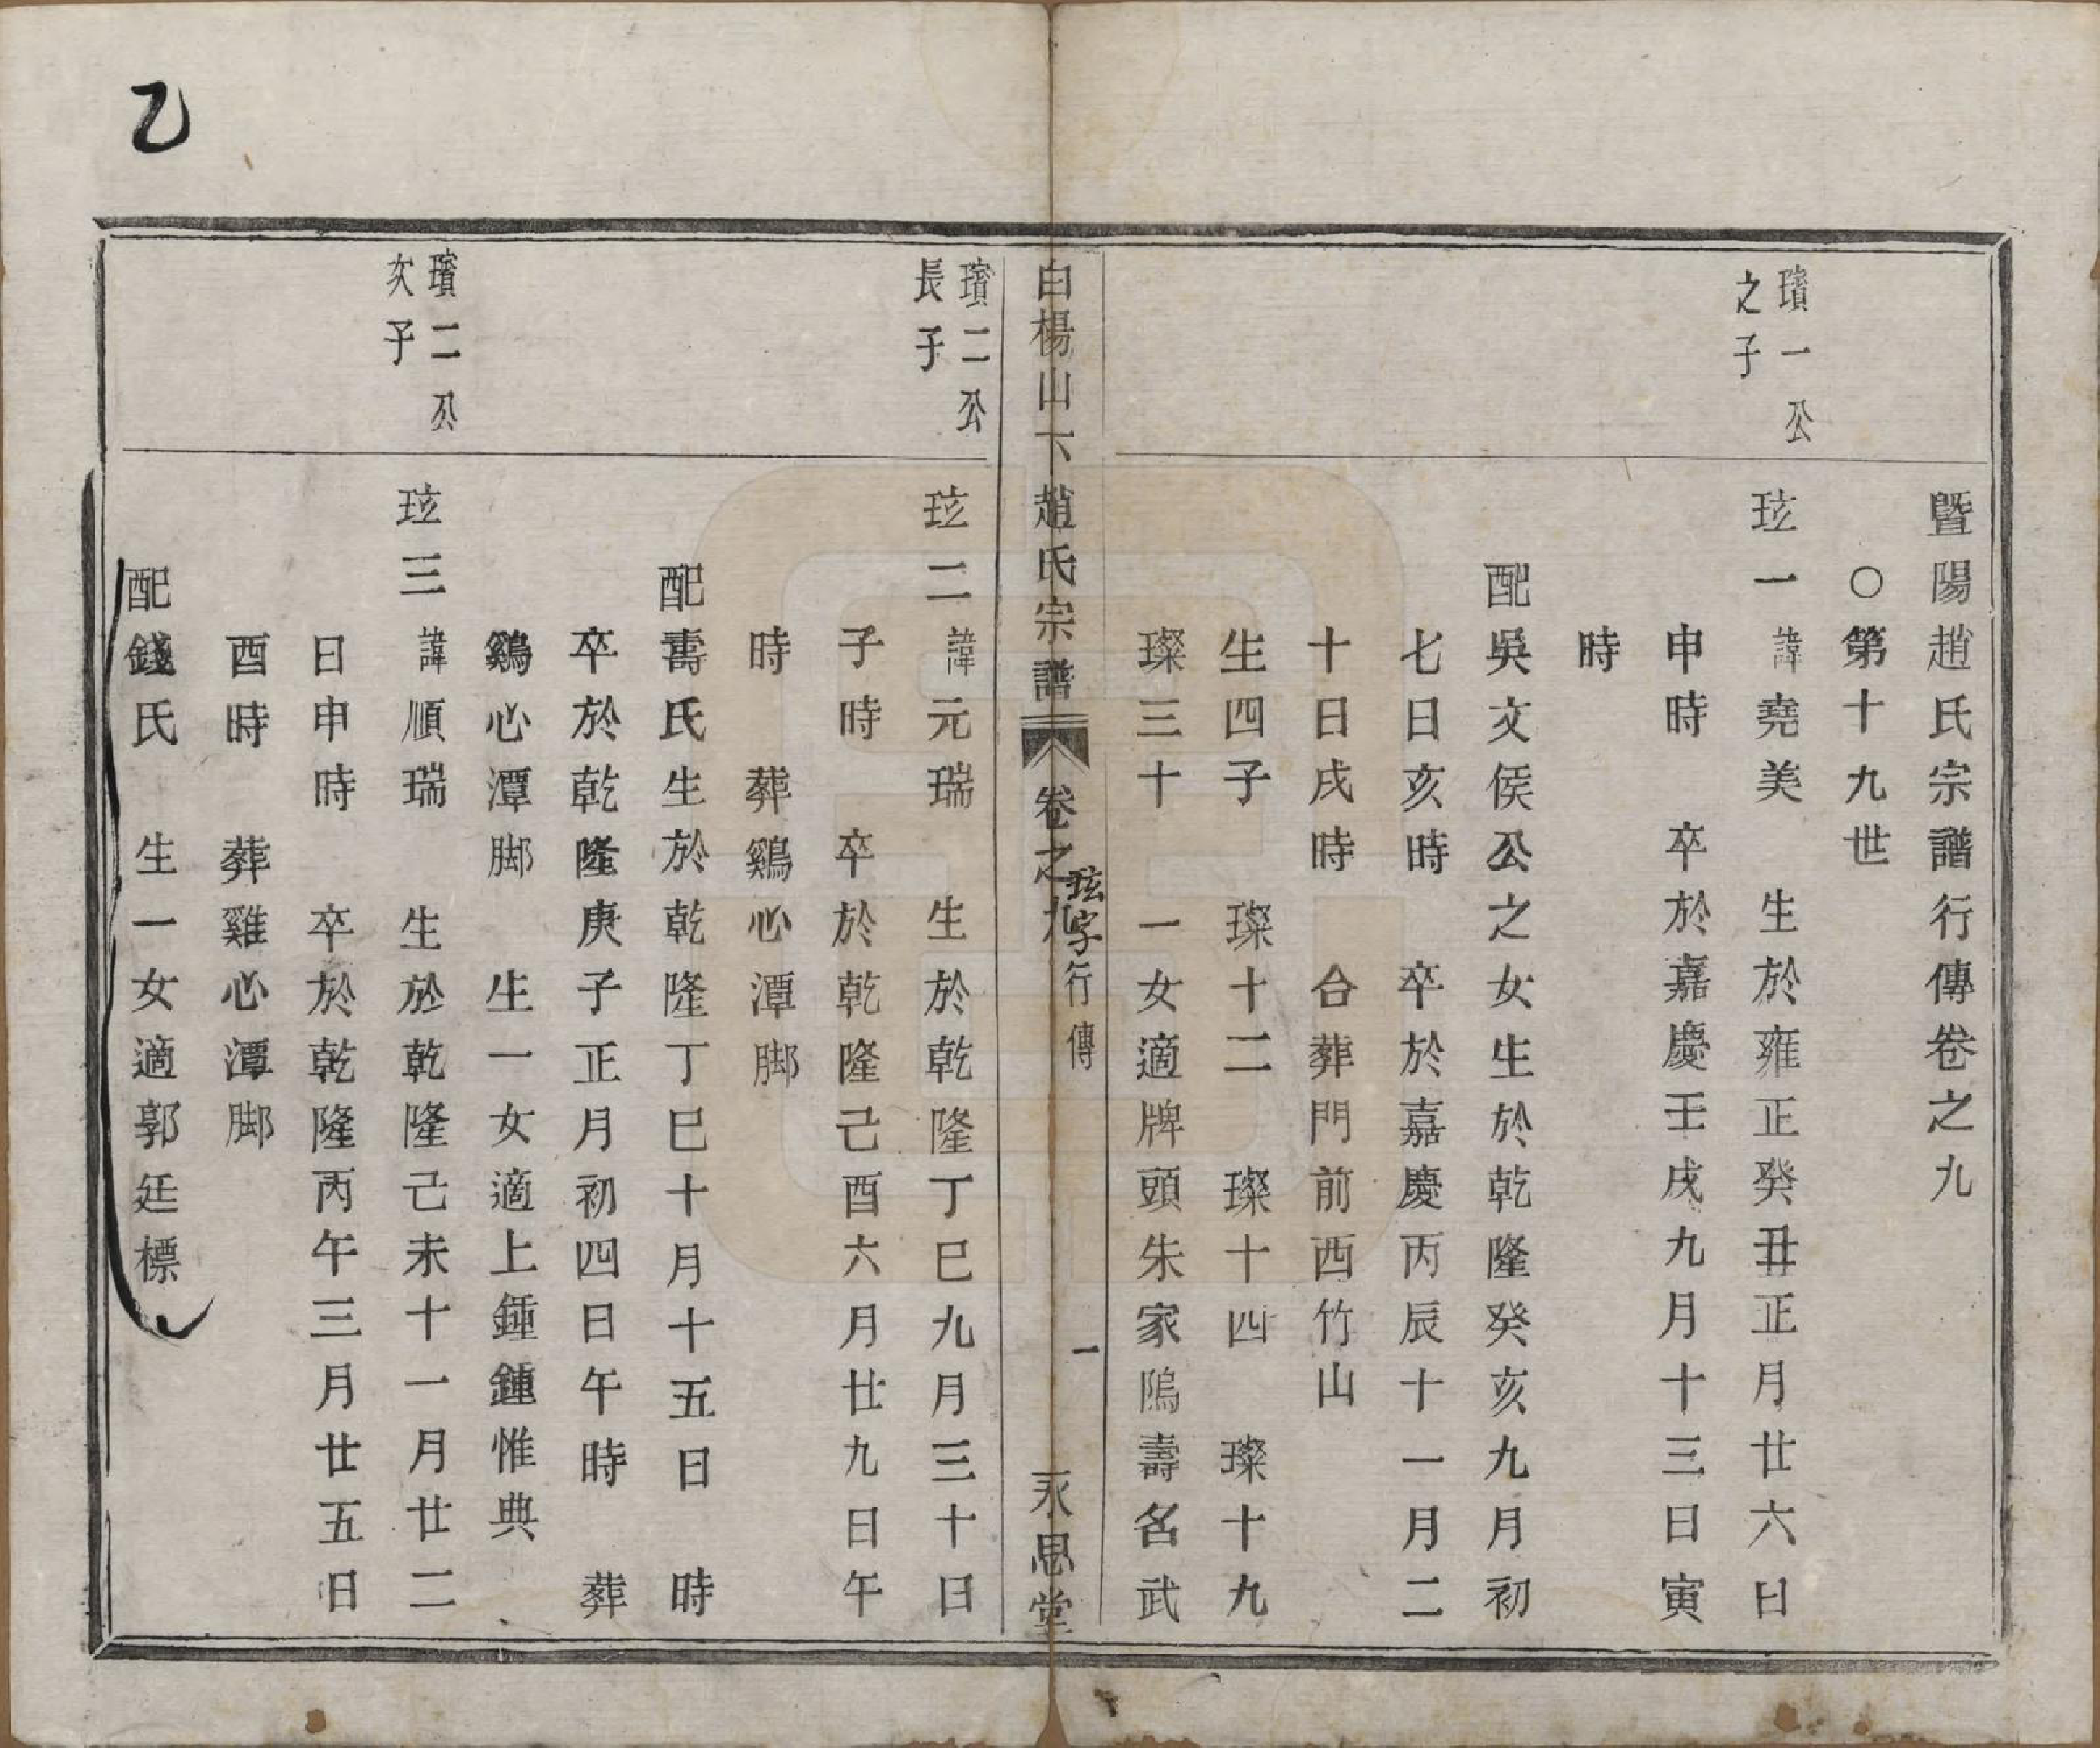 暨陽趙氏宗譜行傳卷之九
○第十九世
璸一公
之子
玹一 諱堯美 生於雍正癸丑正月廿六日
申時 卒於嘉慶壬戌九月十三日寅
時
配吳文侯公之女生於乾隆癸亥九月初
七日亥時 卒於嘉慶丙辰十一月二
十日戌時 合葬門前西竹山
生四子 璨十二 璨十四 璨十九
璨三十 一女適牌頭朱家隖壽名武
白楊山下趙氏宗譜 卷之九 玹字行傳 一 永思堂
璸二公
長子
玹二 諱元瑞 生於乾隆丁巳九月三十日
子時 卒於乾隆己酉六月廿九日午
時 葬鷄心潭脚
配壽氏生於乾隆丁巳十月十五日 時
卒於乾隆庚子正月初四日午時 葬
鷄心潭脚 生一女適上鍾鍾惟典
璸二公
次子
玹三 諱順瑞 生於乾隆己未十一月廿二
日申時 卒於乾隆丙午三月廿五日
酉時 葬雞心潭脚
配錢氏 生一女適郭廷標
乙